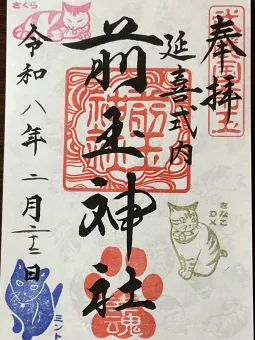 奉拝
延喜式内
前玉神社
令和八年二月二十二日
さくら
きなこ
DX
ミント
魂